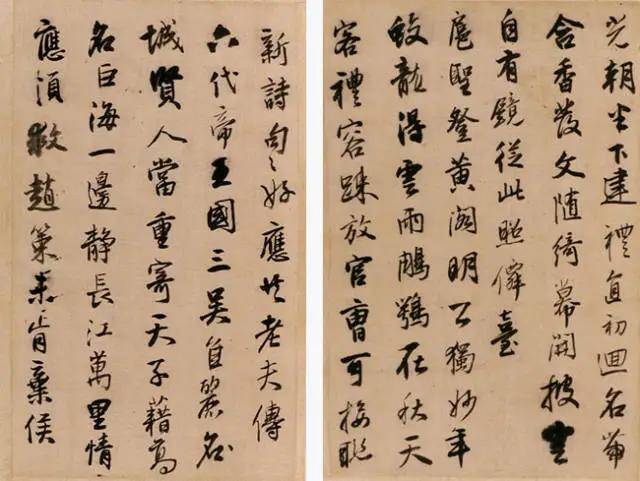 光朝半下建禮直初迴名
含香發文隨綺幕開披雲
自有鏡從此照僊臺
扈聖登黃閣明公獨妙年
蛟龍得雲雨鵰鶚在秋天
客禮容疎放官曹可接聯
新詩句〻好應任老夫傳
六代帝王國三吳自麗名
城賢人當重寄天子藉高
名巨海一邊靜長江萬里清
應須救趙策未肯棄侯